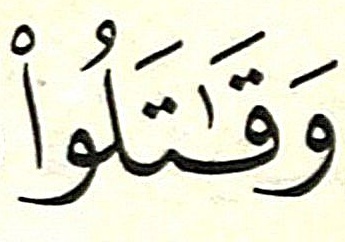 وَقَٰتَلُوا۟